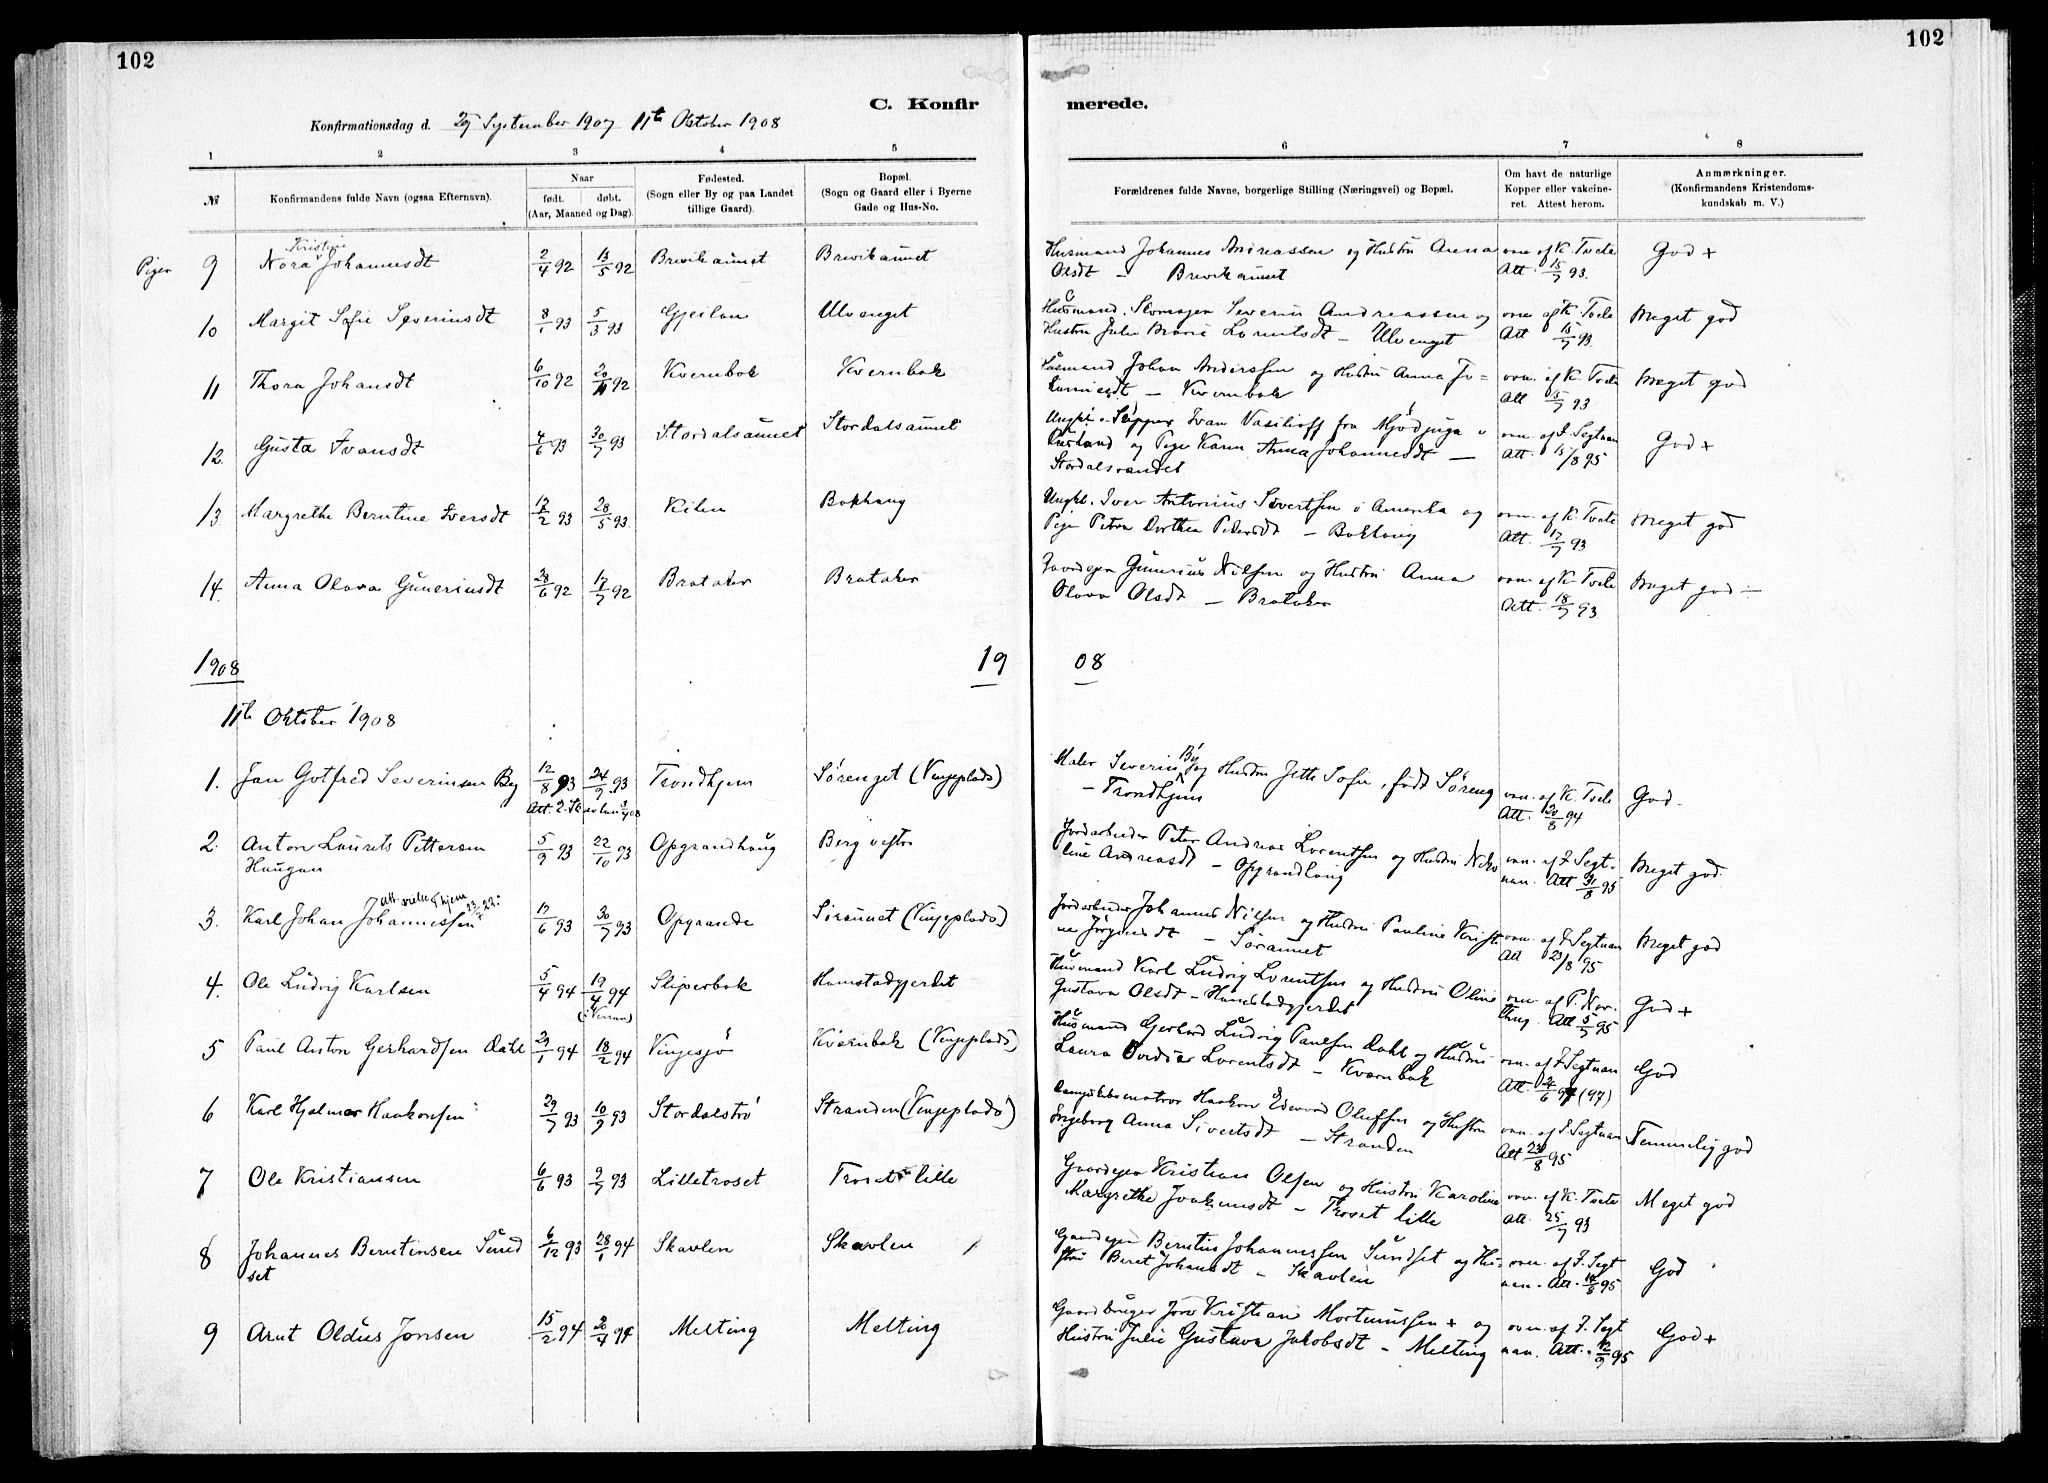 102
102
C. Konfir
merede.
Konfirmationsdag d. 29 September 1907 11te Oktober 1908
1 2 3 4 5 6 7 8
№ Konfirmandens fulde Navn (ogsaa Efternavn). Naar født. døbt. (Aar, Maaned og Dag). Fødested. (Sogn eller By og paa Landet tillige Gaard). Bopæl. (Sogn og Gaard eller i Byerne Gade og Hus-No. Forældrenes fulde Navne, borgerlige Stilling (Næringsvei) og Bopæl. Om havt de naturlige Kopper eller vakcineret. Attest herom. Anmærkninger. (Konfirmandens Kristendomskundskab m. V.)
Piger 9 Nora Kristine Johannesdt 2/4 92 13/5 92 Brevikaunet Brevikaunet Husmand Johannes Andreassen og Hustru Anna vac. af K. Tvete God +
Olsdt — Brevikaunet Att. 15/7 93.
10 Margit Sofie Severinsdt 8/1 93 5/3 93 Gjeilan Ulvenget Husmand Severin Andreassen og vac. af K. Tvete Meget god
Hustru Julie Marie Lorentsdt — Ulvenget Att 15/7 93.
11 Thora Johansdt 6/10 92 20/11 92 Kvernbak Kvernbak Husmand Johan Anderssen og Hustru Anna vac. af K. Tvete Meget god
— Kvernbak Att 15/7 93
12. Gusta Ivansdt 4/6 93 30/7 93 Stordalsaunet Stordalsaunet Ungk. Skipper Ivan Vasilioff fra vac. af J. Segtnan God +
Rusland og Pige Karen Anna Johannesdt — Att. 15/8 95
Stordalsvandet
13. Margrethe Berntine Iversdt 12/2 93 28/5 93. Kilen Bakhaug Ungk. Iver Antonius Sivertsen i Amerika og vac. af K. Tvete Meget god
Pige Petra Dorthea Petersdt — Bakhaug Att. 17/7 93
14. Anna Olava Guneriusdt 28/6 92 17/7 92 Brataker Brataker Gunerius Nilsen og Hustru Anna vac. af K. Tvete Meget god —
Olava Olsdt — Brataker Att. 18/7 93
1908 19 08
11te Oktober 1908
1. Jan Gotfred Severinsen By 12/8 93 24/9 93 Trondhjem Sørenget (Vingeplads) Maler Severin By og Hustru Jette Sofie, født Søreng vac. af K. Tvete God.
— Trondhjem Att. 20/8 94
2. Anton Laurits Pettersen 5/9 93 22/10 93 Opgrandhaug Berg vestre Jordarbeider Peter Andreas Lorentsen og Hustru vac. af J. Segt- Meget god.
Haugan Andreasdt — Opgrandhaug nan. Att 31/8 95
3. Karl Johan Johannessen 17/6 93 30/7 93 Opgrande Søraunet (Vingeplads) Jordarbeider Johannes Nilsen og Hustru Pauline Kristi- vac. af J. Segtnan Meget god
ne Jørginesdt — Søraunet Att 23/8 95
4. Ole Ludvig Karlsen 5/4 94 19/4 94 Sliperbak Hamstadgjerdet Husmand Karl Ludvig Lorentsen og Hustru Oline vac. af P. Nor- God +
(Verran) Gustava Olsdt — Hamstadgjerdet Att 5/7 95
5 Paul Anton Gerhardsen Dahl 29/1 94 18/2 94 Vingesjø Kværnbak (Vingeplads) Husmand Gerhard Ludvig Paulsen Dahl og Hustru vac. af J. Segtnan God
Laura Lorentsdt — Kværnbak Att. 94 (97)
6 Karl Hjalmar Haakonsen 29/7 93 10/9 93 Stordalstrø Stranden (Vingeplads) Haakon Edevard Oluffsen og Hustru vac. af J. Segtnan Temmelig god
Ingeborg Anna Sivertsdt — Stranden Att 23/8 95
7 Ole Kristiansen 6/6 93 9/7 93 Lilletroset Troset lille Gaardeger Kristian Olsen og Hustru Karoline vac. af K. Tvete Meget god
Margrethe Joakimsdt — Troset lille Att. 25/7 93
8 Johannes Berntinsen Sund 6/12 93 28/1 94 Skavlen Skavlen Gaardeger Berntin Johannessen Sundset og Hu- vac. af J. Segt God
set stru Beret Johansdt — Skavlen nan. Att. 14/8 95
9 Arnt Oldus Jonsen 15/2 94 20/4 94 Melting Melting Gaardbruger Jon Kristian Mortinussen + og vac. af J. Segt God +
Hustru Julie Gustava Jakobsdt — Melting nan. Att. 12/9 95